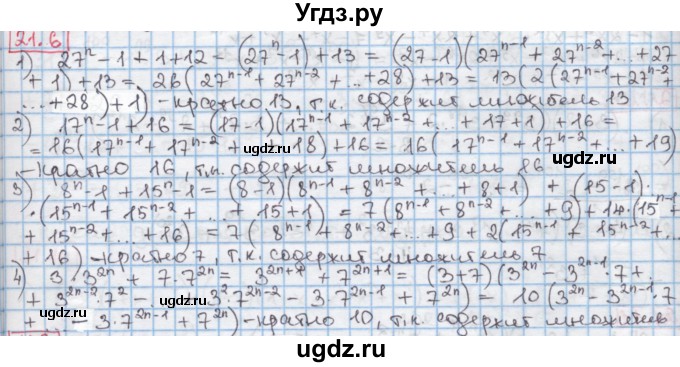 Угдз.ру
21.6
1) 27ⁿ - 1 + 1 + 12 = (27ⁿ - 1) + 13 = (27 - 1)(27ⁿ⁻¹ + 27ⁿ⁻² + ... + 27
+ 1) + 13 = 26(27ⁿ⁻¹ + 27ⁿ⁻² + ... + 28) + 13 = 13(2(27ⁿ⁻¹ + 27ⁿ⁻²
... + 28) + 1) - кратно 13, т.к. содержит множитель 13
2) 17ⁿ - 1 + 16 = (17 - 1)(17ⁿ⁻¹ + 17ⁿ⁻² + ... + 17 + 1) + 16 =
= 16(17ⁿ⁻¹ + 17ⁿ⁻² + ... + 18) + 16 = 16(17ⁿ⁻¹ + 17ⁿ⁻² + ... + 19)
- кратно 16, т.к. содержит множитель 16
3) 8ⁿ - 1 + 15ⁿ - 1 = (8 - 1)(8ⁿ⁻¹ + 8ⁿ⁻² + ... + 8 + 1) + (15 - 1)·
·(15ⁿ⁻¹ + 15ⁿ⁻² + ... + 15 + 1) = 7(8ⁿ⁻¹ + 8ⁿ⁻² + ... + 9) + 14·(15ⁿ⁻¹ +
+ 15ⁿ⁻² + ... + 16) = 7(8ⁿ⁻¹ + 8ⁿ⁻² + ... + 9 + 2(15ⁿ⁻¹ + 15ⁿ⁻² + ...
+ 16) - кратно 7, т.к. содержит множитель 7
4) 3·3²ⁿ + 7·7²ⁿ = 3²ⁿ⁺¹ + 7²ⁿ⁺¹ = (3 + 7)(3²ⁿ - 3²ⁿ⁻¹·7 +
+ 3²ⁿ⁻²·7² - ... 3²·7²ⁿ⁻² - 3·7²ⁿ⁻¹ + 7²ⁿ) = 10(3²ⁿ - 3²ⁿ⁻¹·7
+ ... - 3·7²ⁿ⁻¹ + 7²ⁿ) - кратно 10, т.к. содержит множитель
ugdz.ru